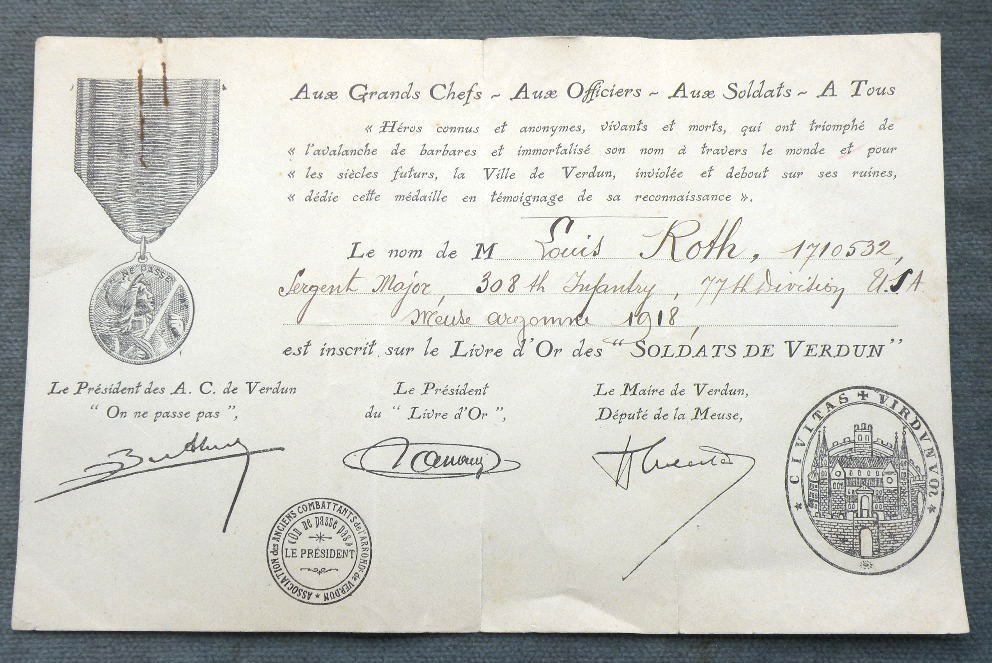 NE PASSE
Aux Grands Chefs ~ Aux Officiers ~ Aux Soldats ~ A Tous
« Héros connus et anonymes, vivants et morts, qui ont triomphé de
« l'avalanche de barbares et immortalisé son nom à travers le monde et pour
« les siècles futurs, la Ville de Verdun, inviolée et debout sur ses ruines,
« dédie cette médaille en témoignage de sa reconnaissance ».
Le nom de M Louis Roth, 1710532,
Sergent Major, 308th Infantry, 77th Division U.S.A
Meuse argomne 1918,
est inscrit sur le Livre d'Or des "SOLDATS DE VERDUN"
Le Président des A. C. de Verdun
" On ne passe pas ",
Le Président
du " Livre d'Or ",
Le Maire de Verdun,
Député de la Meuse,
CIVITAS VIRDVNVM
ASSOCIATION des ANCIENS COMBATTANTS de l'ARRONDt de VERDUN
«On ne passe pas»
LE PRÉSIDENT